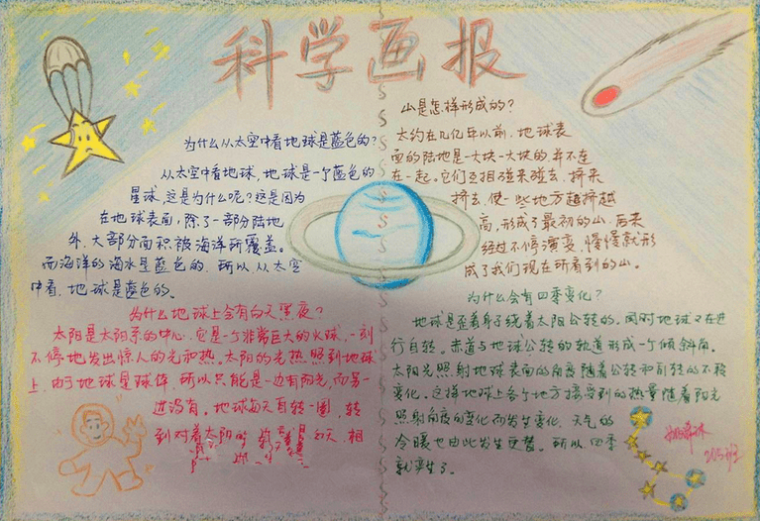 科学画报
为什么从太空中看地球是蓝色的?
从太空中看地球,地球是一个蓝色的
星球,这是为什么呢?这是因为
在地球表面,除了一部分陆地
外,大部分面积被海洋所覆盖。
而海洋的海水是蓝色的,所以,从太空
中看,地球是蓝色的。
为什么地球上会有白天黑夜?
太阳是太阳系的中心,它是一个非常巨大的火球,一刻
不停地发出惊人的光和热。太阳的光热照到地球
上,由于地球是球体,所以只能是一边有阳光,而另一
边没有。地球每天自转一圈,转
到对着太阳的 是白天,相
山是怎样形成的?
大约在几亿年以前,地球表
面的陆地是一大块一大块的,并不连
在一起。它们互相碰来碰去,挤来
挤去,使一些地方越挤越
高,形成了最初的山,后来
经过不停演变,慢慢就形
成了我们现在所看到的山。
为什么会有四季变化?
地球是歪着身子绕着太阳公转的。同时地球又在进
行自转。赤道与地球公转的轨道形成一个倾斜角。
太阳光照射地球表面的角度随着公转和自转的不断
变化。这样地球上各个地方接受到的热量随着阳光
照射角度的变化而发生变化,天气的
冷暖也由此发生更替。所以,四季
就产生了。